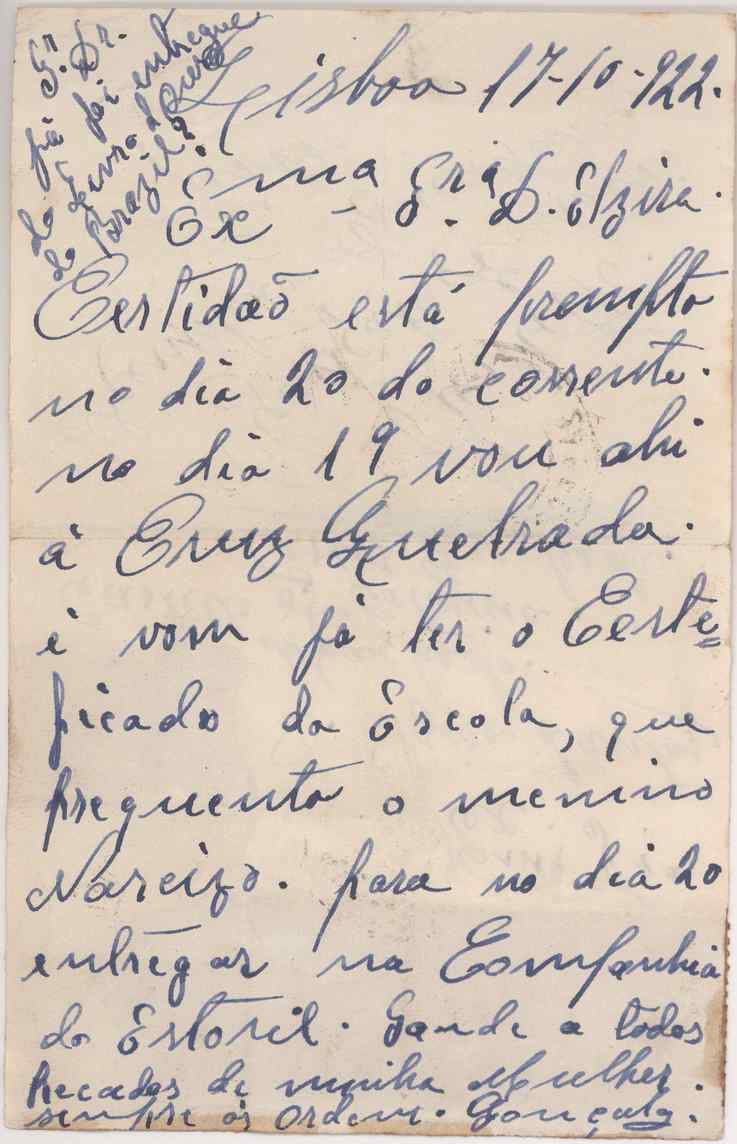 Sr. Dr.
já foi entregue
do Livro de Ouro
do Brazil?
Lisboa 17-10-922.
Exma Sra D. Elzira.
Certidaõ está prompto
no dia 20 do corrente.
no dia 19 vou ahi
á Cruz Quebrada.
é vom já ter o Certe=
ficado da Escola, que
frequenta o menino
Narcizo. para no dia 20
entregar na Companhia
do Estoril. Saude a todos
Recados de minha Mulher.
sempre ás Ordem. Gonçalz.